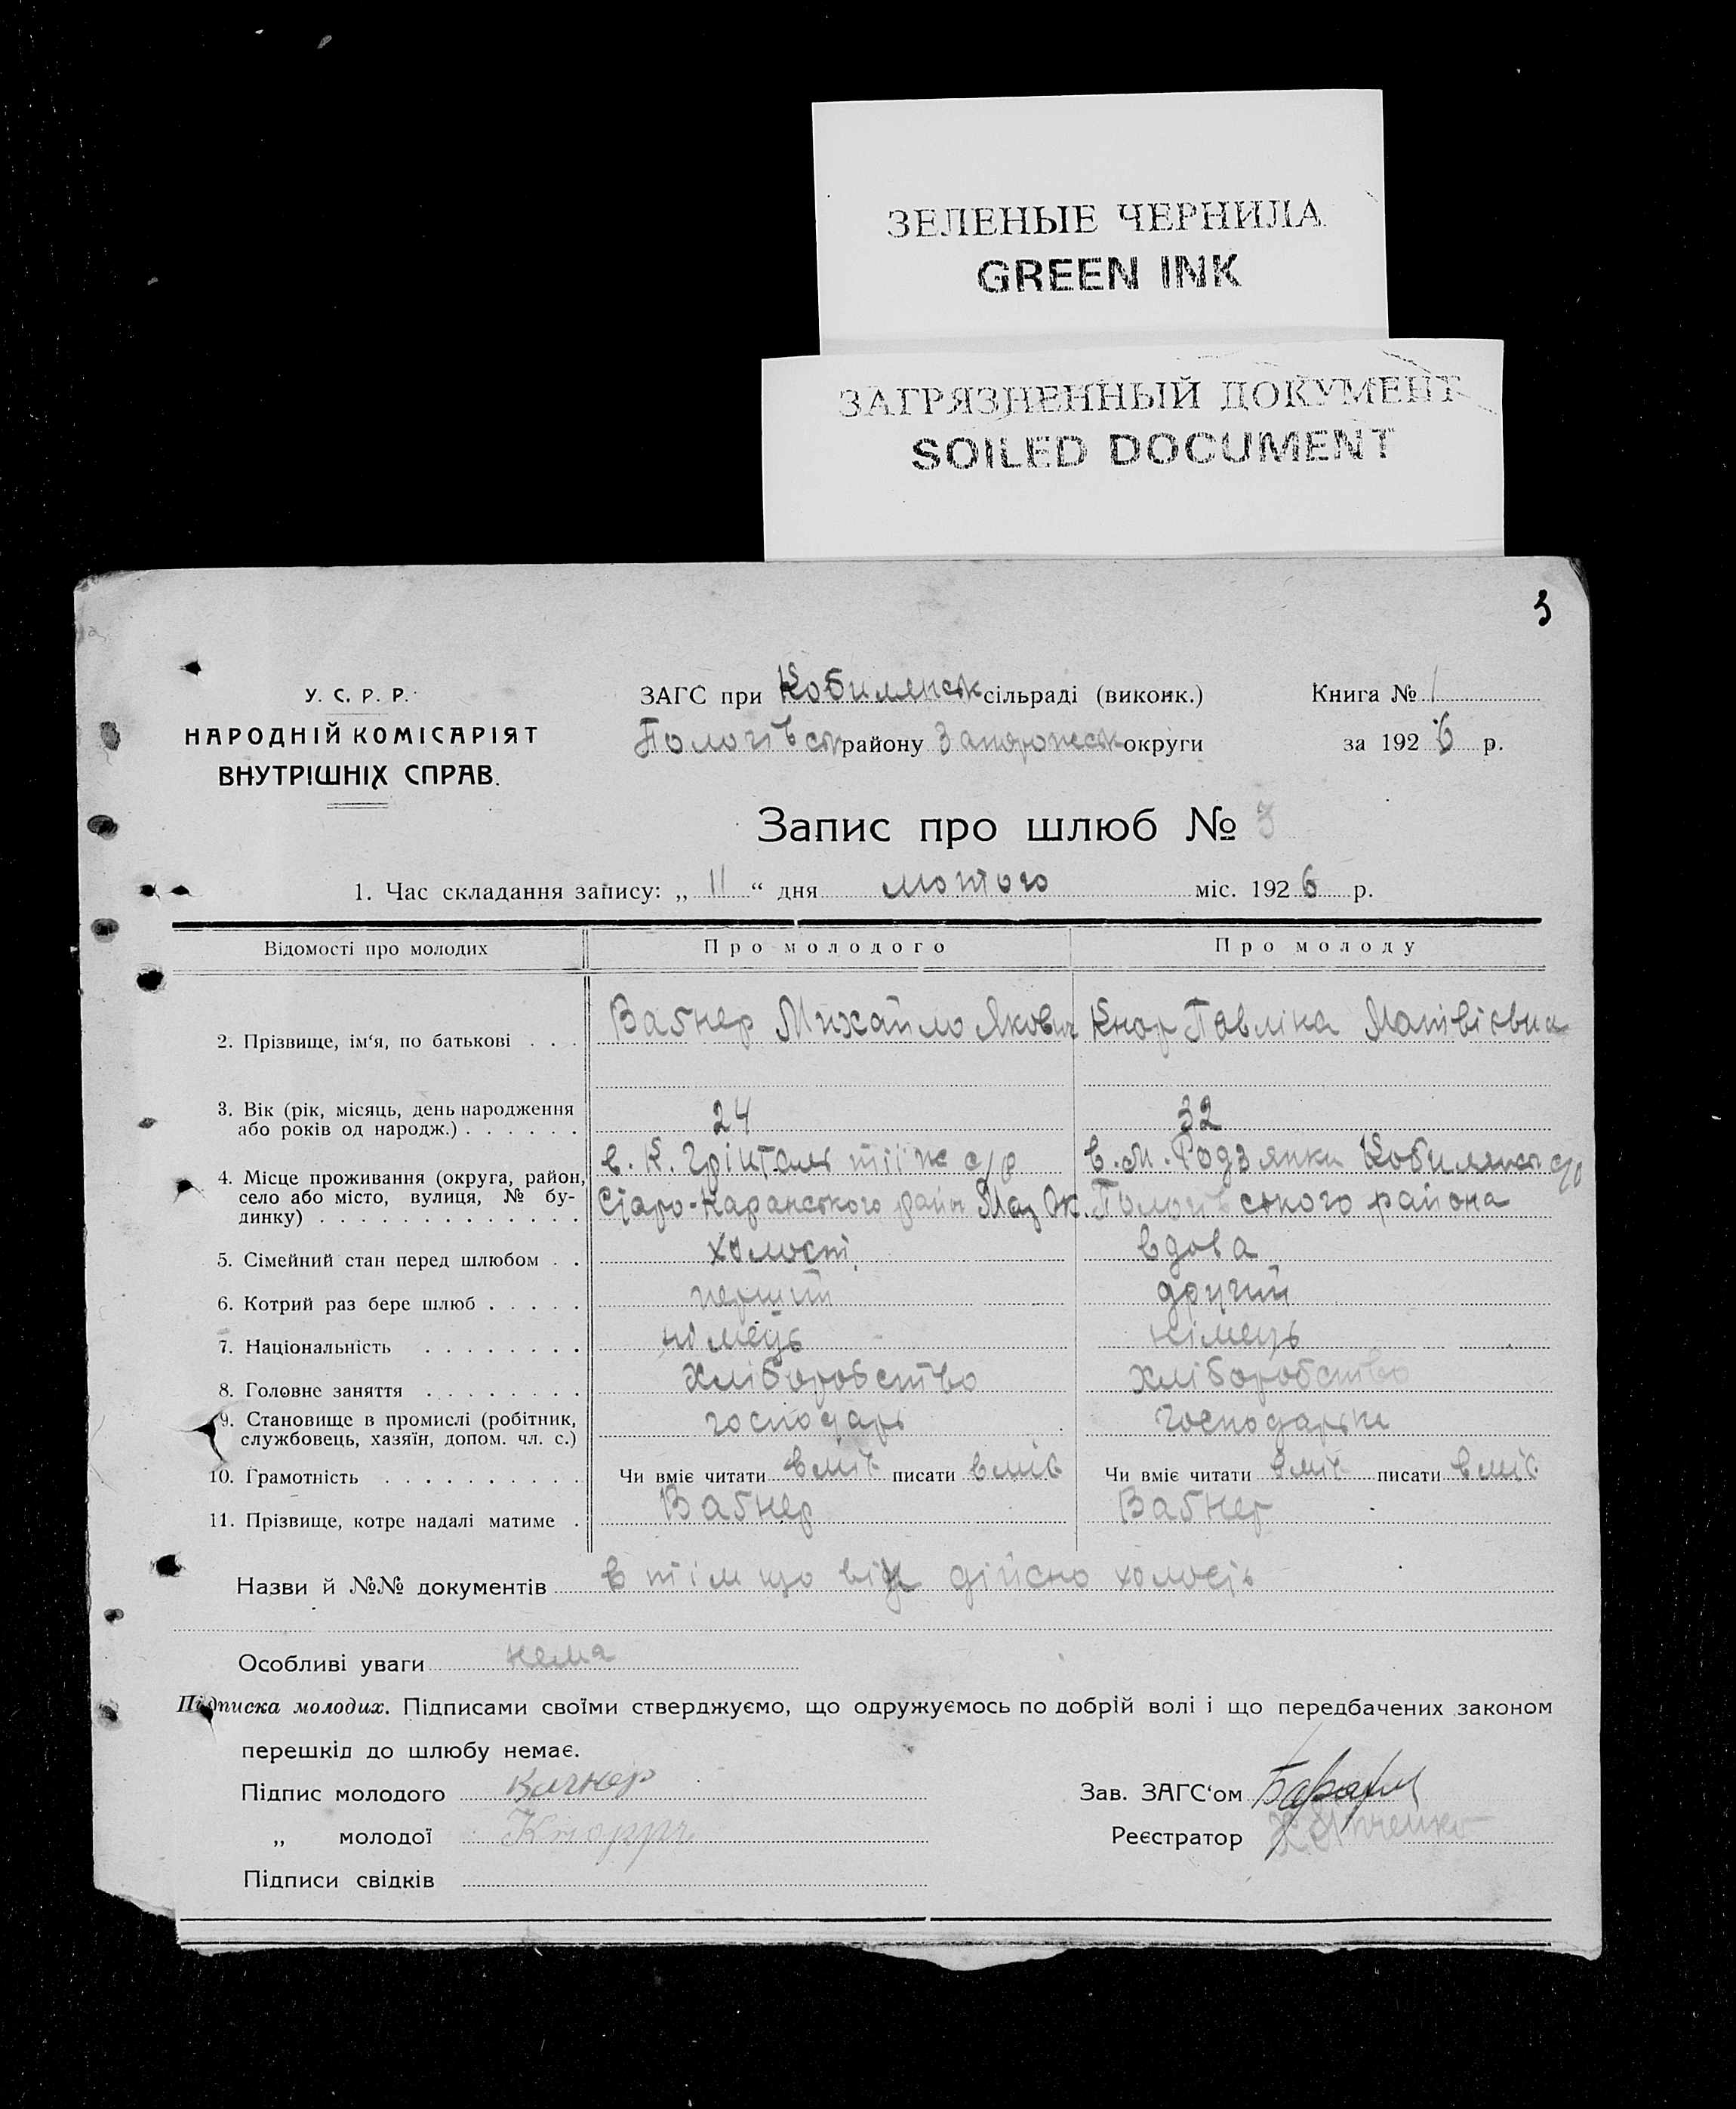 ЗЕЛЕНЫЕ ЧЕРНИЛА
GREEN INK
ЗАГРЯЗНЕННЫЙ ДОКУМЕНТ
SOILED DOCUMENT
3
У. С. Р. Р.
НАРОДНІЙ КОМІСАРІЯТ
ВНУТРІШНІХ СПРАВ.
ЗАГС при Кобилянськ сільраді (виконк.)
Книга № 1
Пологівськ району Запорожськ округи
за 1926 р.
Запис про шлюб № 3
1. Час складання запису: „ 11 “ дня лютого міс. 1926 р.
Відомості про молодих
Про молодого
Про молоду
2. Прізвище, ім‘я, по батькові . . .
Вагнер Михайло Якович
Кнор Павліна Матвієвна
3. Вік (рік, місяць, день народження
або років од народж.) . . . . . .
24
32
4. Місце проживання (округа, район,
село або місто, вулиця, № бу-
динку) . . . . . . . . . . . . .
с/р
Старо-Каранського район Мар Ок.
в. М. Родзянки Кобилянськ с/р
Пологівського района
5. Сімейний стан перед шлюбом . .
холост
вдова
6. Котрий раз бере шлюб . . . . .
перший
другий
7. Національність . . . . . . . .
німець
німець
8. Головне заняття . . . . . . . .
хліборобство
хліборобство
9. Становище в промислі (робітник,
службовець, хазяїн, допом. чл. с.)
господарь
господарька
10. Грамотність . . . . . . . . . .
Чи вміє читати вміє писати вміє
Чи вміє читати вміє писати вміє
11. Прізвище, котре надалі матиме .
Вагнер
Вагнер
Назви й №№ документів в тім що він дійсно холость
Особливі уваги нема
Підписка молодих. Підписами своїми стверджуємо, що одружуємось по добрій волі і що передбачених законом
перешкід до шлюбу немає.
Підпис молодого Вагнер
Зав. ЗАГС‘ом
„ молодої
Реєстратор
Підписи свідків